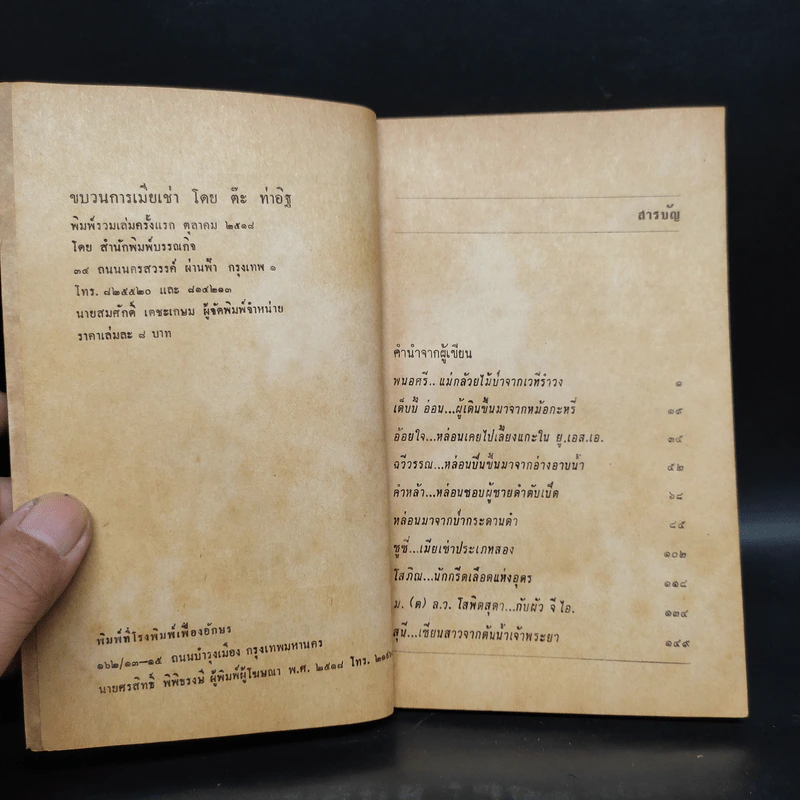 ขบวนการเมียเช่า โดย ต๊ะ ท่าอิฐ
พิมพ์รวมเล่มครั้งแรก ตุลาคม ๒๕๑๘
โดย สำนักพิมพ์บรรณกิจ
๓๔ ถนนนครสวรรค์ ผ่านฟ้า กรุงเทพ ๑
โทร. ๘๒๕๕๒๐ และ ๘๑๔๒๑๓
นายสมศักดิ์ เตชะเกษม ผู้จัดพิมพ์จำหน่าย
ราคาเล่มละ ๘ บาท
พิมพ์ที่โรงพิมพ์เฟื่องอักษร
๑๖๒/๑๓-๑๕ ถนนบำรุงเมือง กรุงเทพมหานคร
นายศรสิทธิ์ พิพิธรงษี ผู้พิมพ์ผู้โฆษณา พ.ศ. ๒๕๑๘ โทร.
สารบัญ
คำนำจากผู้เขียน
พนอศรี..แม่กล้วยไม้ป่าจากเวทีรำวง ๑
เด็บบี้ อ่อน...ผู้เดินขึ้นมาจากหม้อกะหรี่ ๑๙
อ้อยใจ...หล่อนเคยไปเลี้ยงแกะใน ยู.เอส.เอ. ๓๕
ฉวีวรรณ...หล่อนปีนขึ้นมาจากอ่างอาบน้ำ ๕๒
คำหล้า...หล่อนชอบผู้ชายดำตับเป็ด ๖๘
หล่อนมาจากป่ากระดานดำ ๘๕
ซูซี่...เมียเช่าประเภทสอง ๑๐๒
โสภิณ...นักกรีดเลือดแห่งอุดร ๑๑๘
ม. (ต) ล.ว. โสพิตสุดา...กับผัว จี ไอ. ๑๓๔
สุนี...เซียนสาวจากต้นน้ำเจ้าพระยา ๑๔๙